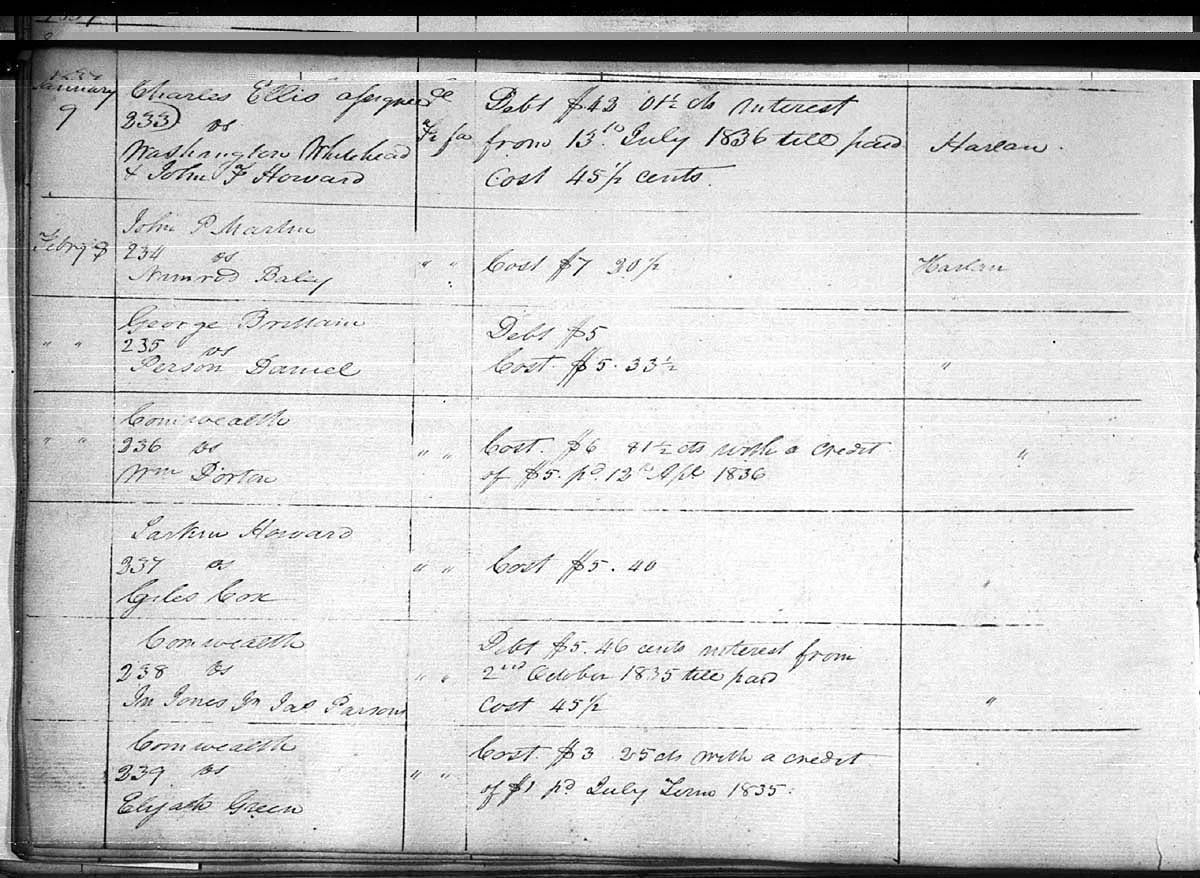 January
9
Charles Ellis assignee &c
233) vs
Washington Whitehead
& John F Howard
Fi fa
Debt $42 01½ cts interest
from 13th July 1836 till paid
Cost 45½ cents.
Harlan.
Febry 8
John P Martin
234 vs
Nimrod Baley
" "
Cost $7 20½
Harlan
" "
George Brittain
235 vs
Person Daniel
Debt $5
Cost $5. 33½
"
" "
Comwealth
236 vs
Wm Dorton
" "
Cost. $6 81½ cts with a credit
of $5. pd. 12th Apl 1836
"
Larkin Howard
237 vs
Giles Cox
" "
Cost $5. 40
"
Comwealth
238 vs
Jn Jones Jr Jas Parsons
" "
Debt $5. 46 cents interest from
2nd October 1835 till paid
Cost 45½
"
Comwealth
239 vs
Elijah Green
" "
Cost. $3. 25 cts with a credit
of $1 pd July Term 1835.